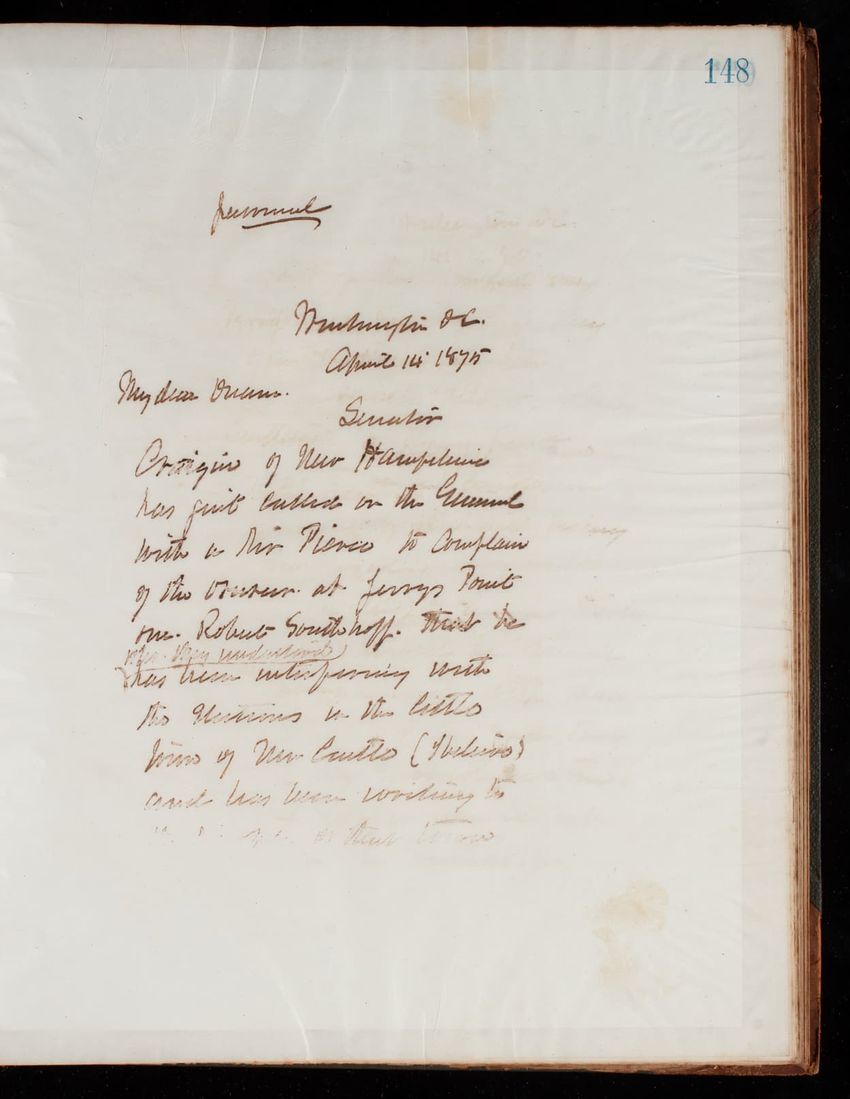 148
personal
Washington DC.
April 14 1875
My dear Duane.
Senator
Cragin of New Hampshire
has just called on the General
with a Mr Pierce to complain
of the Overseer at Jerrys Point
one. Robert Southhoff. That he
has been interfering with
the elections in the little
town of New Castle (I believe)
and has been working to
that town